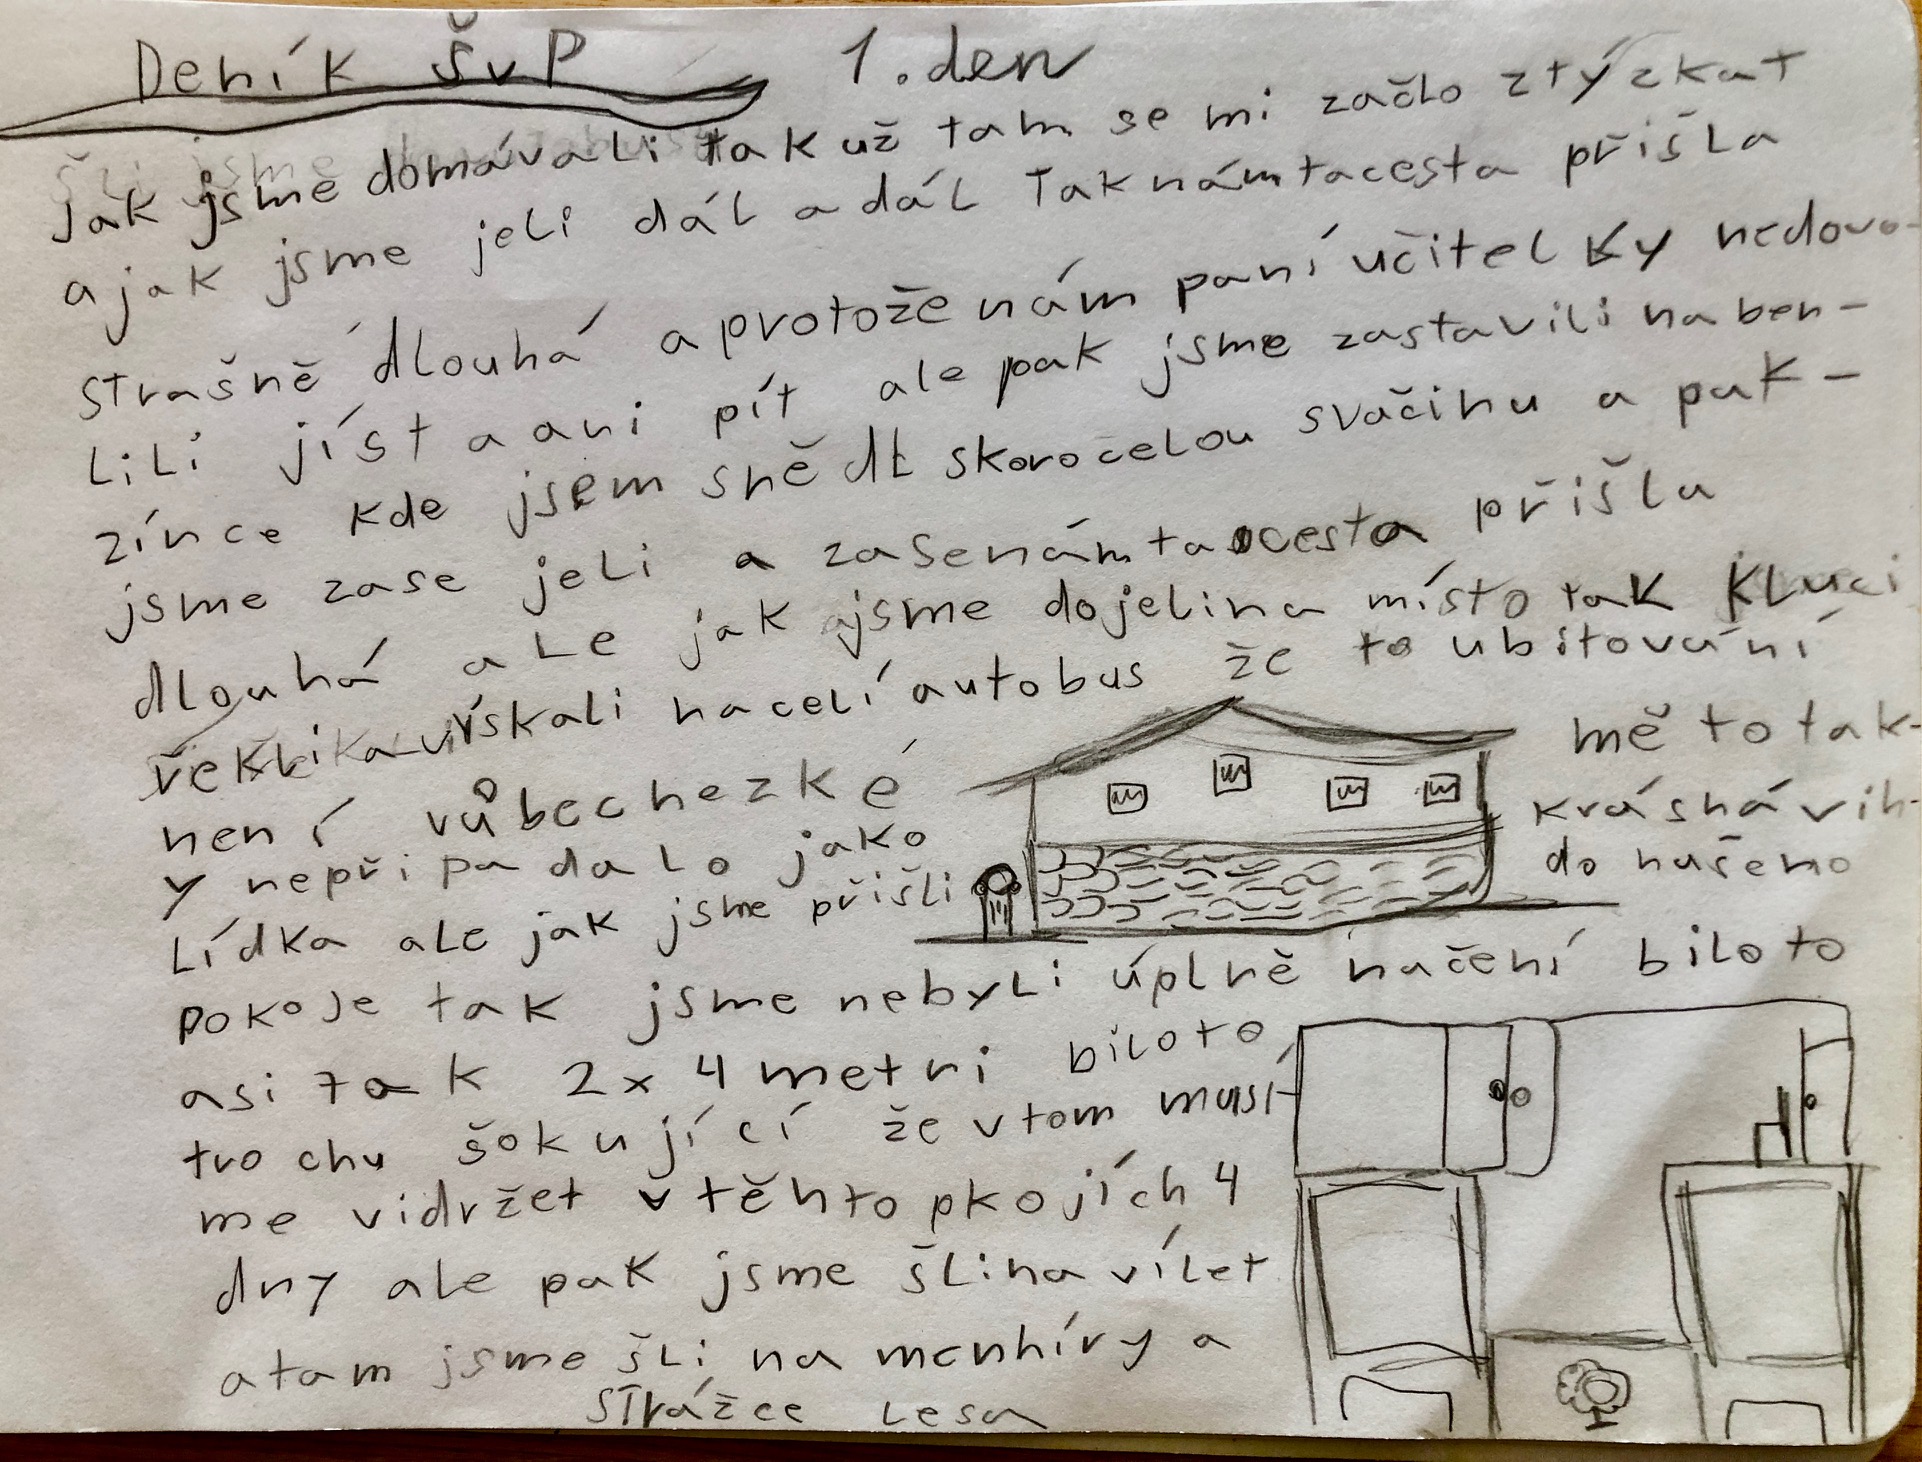 Deník ŠvP 1. den
jak jsme domávali tak už tam se mi začlo ztýzkat
a jak jsme jeli dál a dál Tak nám ta cesta přišla
strašně dlouhá a protože nám paní učitelky nedovo-
lili jíst a ani pít ale pak jsme zastavili na ben-
zínce kde jsem snědl skoro celou svačinu a pak-
jsme zase jeli a zase nám ta cesta přišla
dlouhá ale jak jsme dojeli na místo tak kluci
vískali na celí autobus že to ubitování
není vůbec hezké mě to tak-
y nepřipadalo jako krásná vih-
lídka ale jak jsme přišli do našeho
pokoje tak jsme nebyli úplně načení bilo to
asi tak 2x4 metri bilo to
trochu šokující že v tom musí
me vidržet v těhto pkojích 4
dny ale pak jsme šli na vílet
a tam jsme šli na menhíry a
strážce lesa